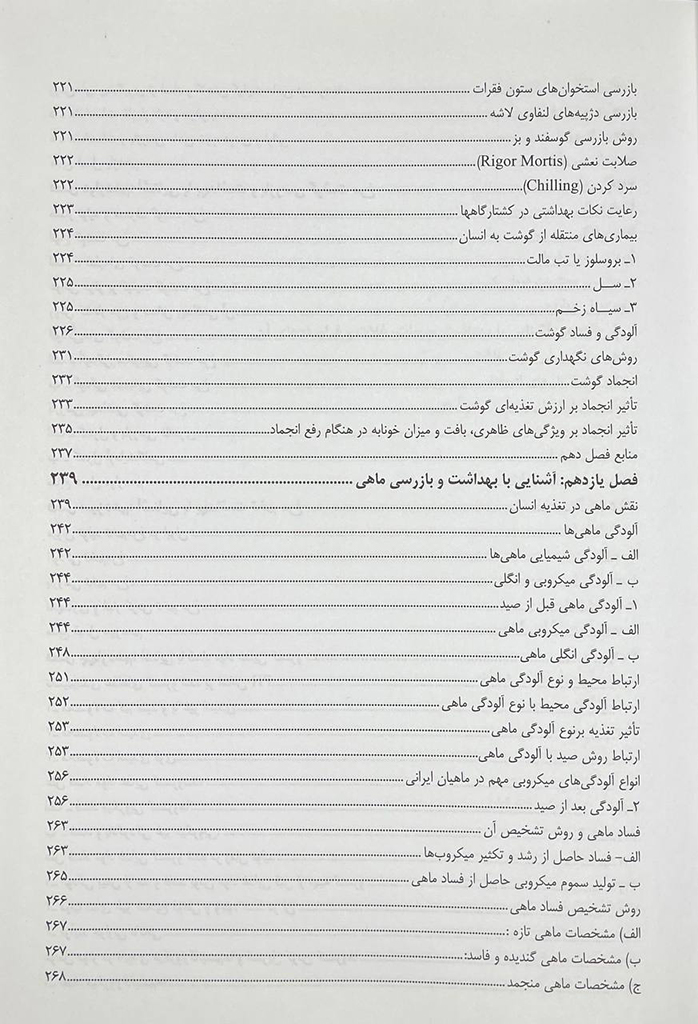 بازرسی استخوان‌های ستون فقرات ... ۲۲۱
بازرسی دژپیه‌های لنفاوی لاشه ... ۲۲۱
روش بازرسی گوسفند و بز ... ۲۲۱
صلابت نعشی (Rigor Mortis) ... ۲۲۲
سرد کردن (Chilling) ... ۲۲۲
رعایت نکات بهداشتی در کشتارگاهها ... ۲۲۳
بیماری‌های منتقله از گوشت به انسان ... ۲۲۴
۱ـ بروسلوز یا تب مالت ... ۲۲۴
۲ـ سـل ... ۲۲۵
۳ـ سیـاه زخـم ... ۲۲۵
آلودگی و فساد گوشت ... ۲۲۶
روش‌های نگهداری گوشت ... ۲۳۱
انجماد گوشت ... ۲۳۲
تأثیر انجماد بر ارزش تغذیه‌ای گوشت ... ۲۳۳
تأثیر انجماد بر ویژگی‌های ظاهری، بافت و میزان خونابه در هنگام رفع انجماد ... ۲۳۵
منابع فصل دهم ... ۲۳۷
فصل یازدهم: آشنایی با بهداشت و بازرسی ماهی ... ۲۳۹
نقش ماهی در تغذیه انسان ... ۲۳۹
آلودگی ماهی‌ها ... ۲۴۲
الف ـ آلودگی شیمیایی ماهی‌ها ... ۲۴۲
ب ـ آلودگی میکروبی و انگلی ... ۲۴۴
۱ـ آلودگی ماهی قبل از صید ... ۲۴۴
الف ـ آلودگی میکروبی ماهی ... ۲۴۴
ب ـ آلودگی انگلی ماهی ... ۲۴۸
ارتباط محیط و نوع آلودگی ماهی ... ۲۵۱
ارتباط آلودگی محیط با نوع آلودگی ماهی ... ۲۵۲
تأثیر تغذیه برنوع آلودگی ماهی ... ۲۵۳
ارتباط روش صید با آلودگی ماهی ... ۲۵۳
انواع آلودگی‌های میکروبی مهم در ماهیان ایرانی ... ۲۵۶
۲ـ آلودگی بعد از صید ... ۲۵۶
فساد ماهی و روش تشخیص آن ... ۲۶۳
الف- فساد حاصل از رشد و تکثیر میکروب‌ها ... ۲۶۳
ب ـ تولید سموم میکروبی حاصل از فساد ماهی ... ۲۶۵
روش تشخیص فساد ماهی ... ۲۶۶
الف) مشخصات ماهی تازه : ... ۲۶۷
ب) مشخصات ماهی گندیده و فاسد: ... ۲۶۷
ج) مشخصات ماهی منجمد ... ۲۶۸